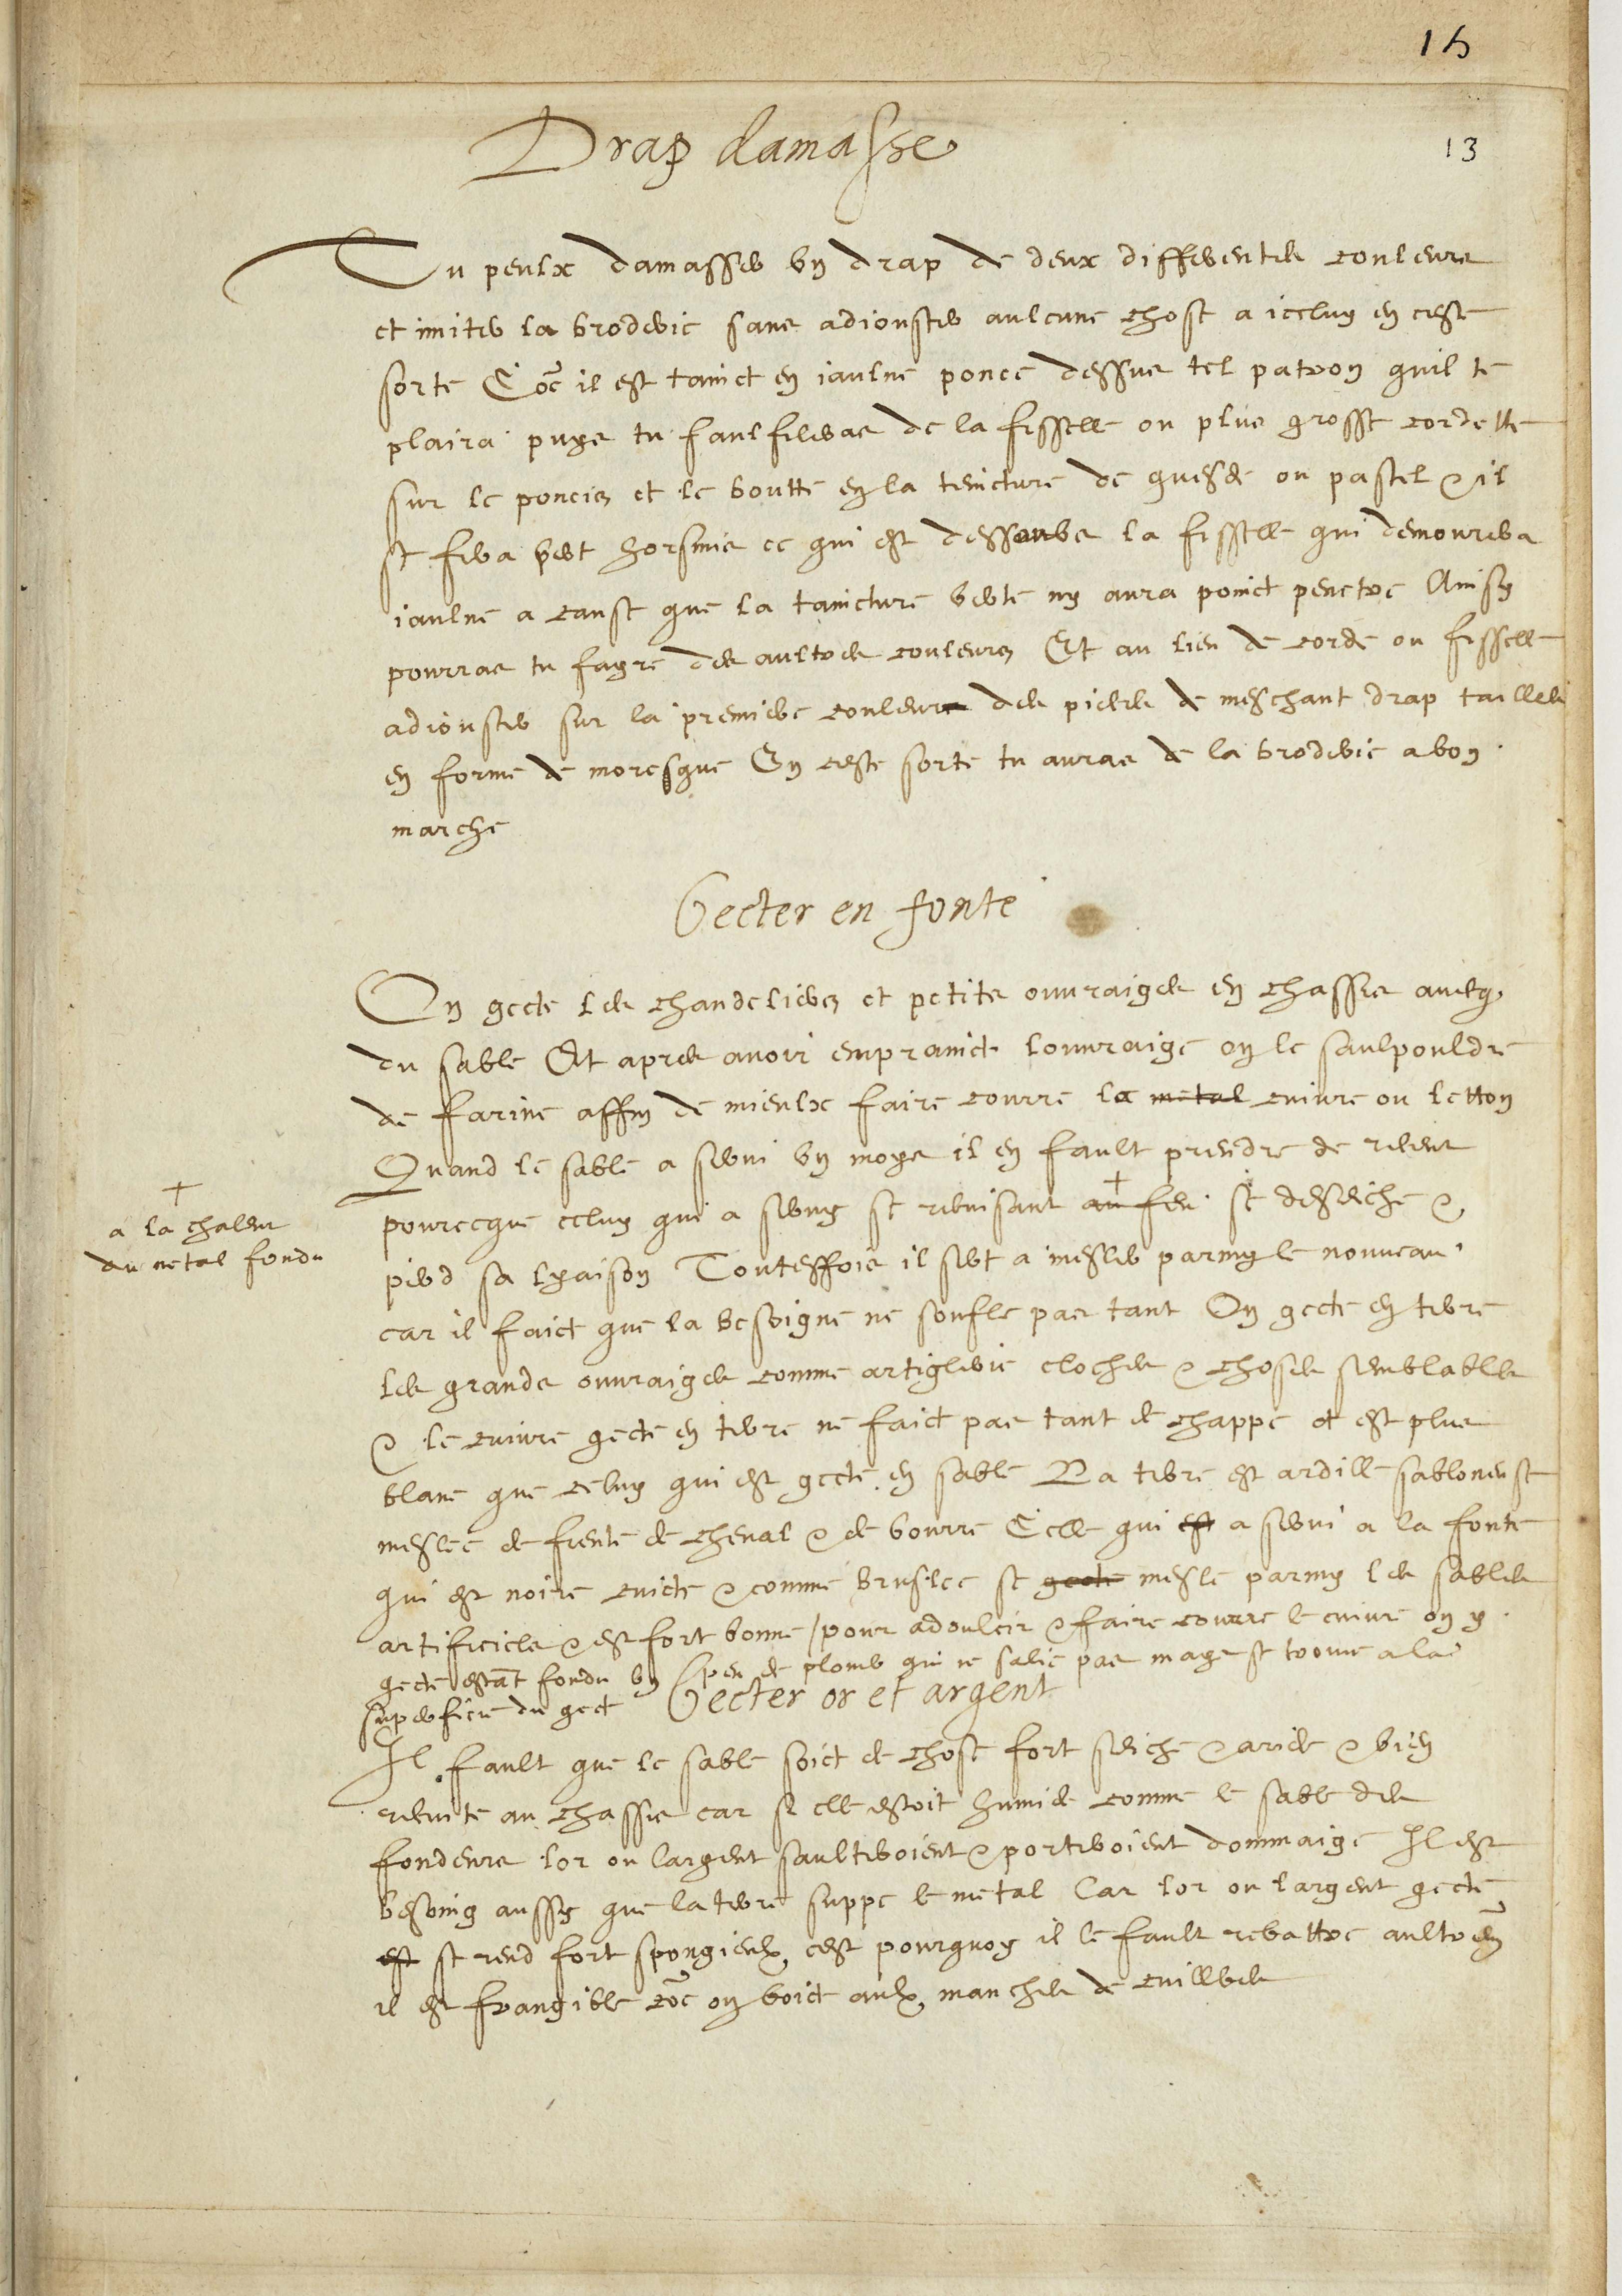 15
13
Drap damasse
Tu peulx damasser un drap de deux differentes couleurs
et imiter la broderie sans adiouster aulcune chose a icelluy en ceste
sorte Coe il est tainct en iaulne ponce dessus tel patron quil te
plaira puys tu faulfileras de la fisselle ou plus grosse cordelle
sur le poncis et le boutte en la teincture de guesde ou pastel & il
se fera vert horsmis ce qui est dessoubs la fisselle qui demourera
iaulne a cause que la taincture verte ny aura poinct penetre Ainsy
pourras tu fayre des aultres couleurs Et au lieu de corde ou fisselle
adiouster sur la premiere couleur des pieces de meschant drap taillees
en forme de moresque En ceste sorte tu auras de la broderie a bon
marche
Gecter en fonte
On gecte les chandeliers et petits ouvraiges en chassis avecq
du sable Et apres avoir emprainct louvraige on le saulpouldre
de farine affin de mieulx faire courre le metal cuivre ou letton
Quand le sable a servi un moys il en fault prendre de recent
pourceque celuy qui a servy se recuisant au feu + se desseiche &
+
a la chaleur
du metal fondu
perd sa lyaison Touteffois il sert a mesler parmy le nouveau
car il faict que la besoigne ne soufle pas tant On gecte en terre
les grands ouvraiges comme artiglerie cloches & choses semblables
& le cuivre gecte en terre ne faict pas tant de chappe et est plus
blanc que celuy qui est gecte en sable La terre est ardille sabloneuse
meslee de fiente de cheval & de bourre Celle qui est a servi a la fonte
qui est noire cuicte & comme bruslee se gecte mesle parmy les sables
artificiels & est fort bonne / pour adoulcir & faire courre le cuivre on y
gecte estant fondu un peu de plomb qui ne salie pas mays se trouve a la
superficie du gect
Gecter or et argent
Il fault que le sable soict de chose fort seiche & aride & bien
recuite au chassis car si elle estoit humide comme le sable des
fondeurs lor ou largent saulteroient & porteroient dommaige Il est
besoing aussy que la terre suppe le metal Car lor ou largent gecte
est se rend fort spongieulx cest pourquoy il le fault rebattre aultrem
il est frangible coe on voict aulx manches de cuilleres